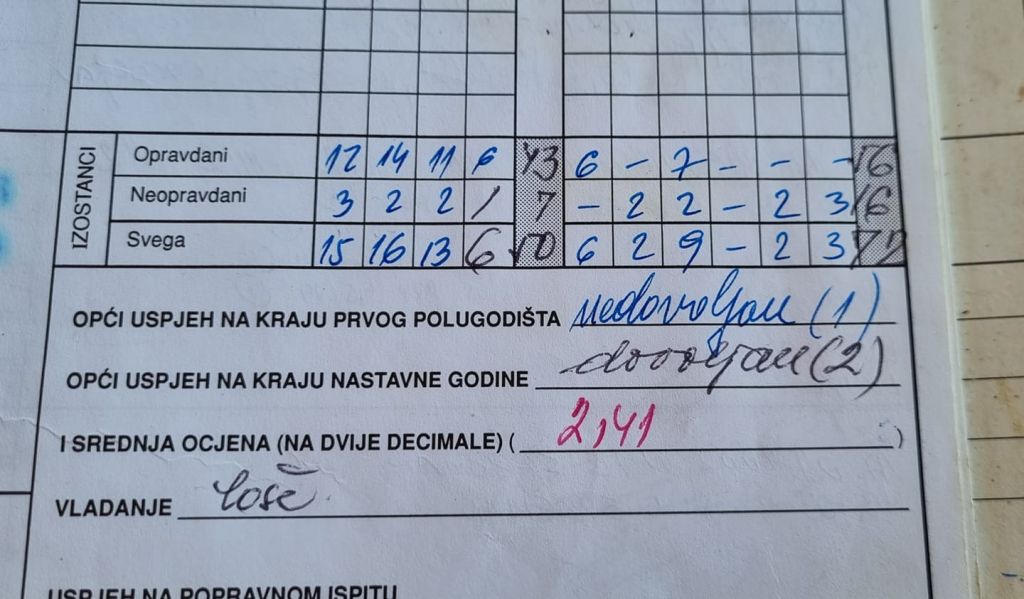 IZOSTANCI
Opravdani 12 14 11 6 43 6 - 7 - - - 56
Neopravdani 3 2 2 / 7 - 2 2 - 2 3 16
Svega 15 16 13 6 50 6 2 9 - 2 3 72
OPĆI USPJEH NA KRAJU PRVOG POLUGODIŠTA nedovoljan (1)
OPĆI USPJEH NA KRAJU NASTAVNE GODINE dovoljan (2)
I SREDNJA OCJENA (NA DVIJE DECIMALE) ( 2,41 )
VLADANJE loše
USPJEH NA POPRAVNOM ISPITU